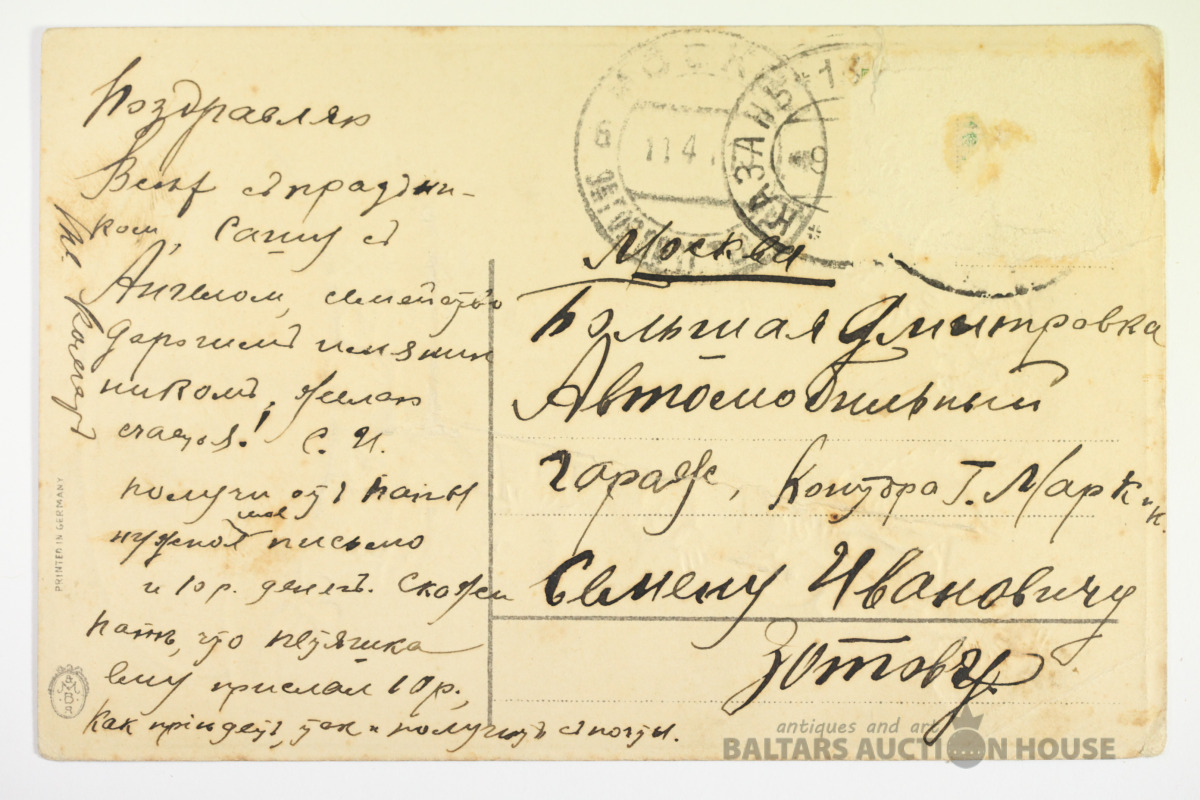 Поздравляю
Всѣх съ праздни-
ком, Сашу съ
Ангелом, семейство
дорогимъ имянин
никомъ, желаю
счастья! С. И.
получи отъ папы
нужное мне письмо
и 10 р. денегъ. Скажи
папѣ, что Петяшка
ему прислал 10 р.,
как придетъ, так и получитъ с почты.
МОСКВА
11 4
КАЗАНЬ
Москва
Большая Дмитровка
Автомобильный
гараж, Контора Г. Марк и К.
Семену Ивановичу
Зотову.
PRINTED IN GERMANY
antiques and art
BALTARS AUCTION HOUSE